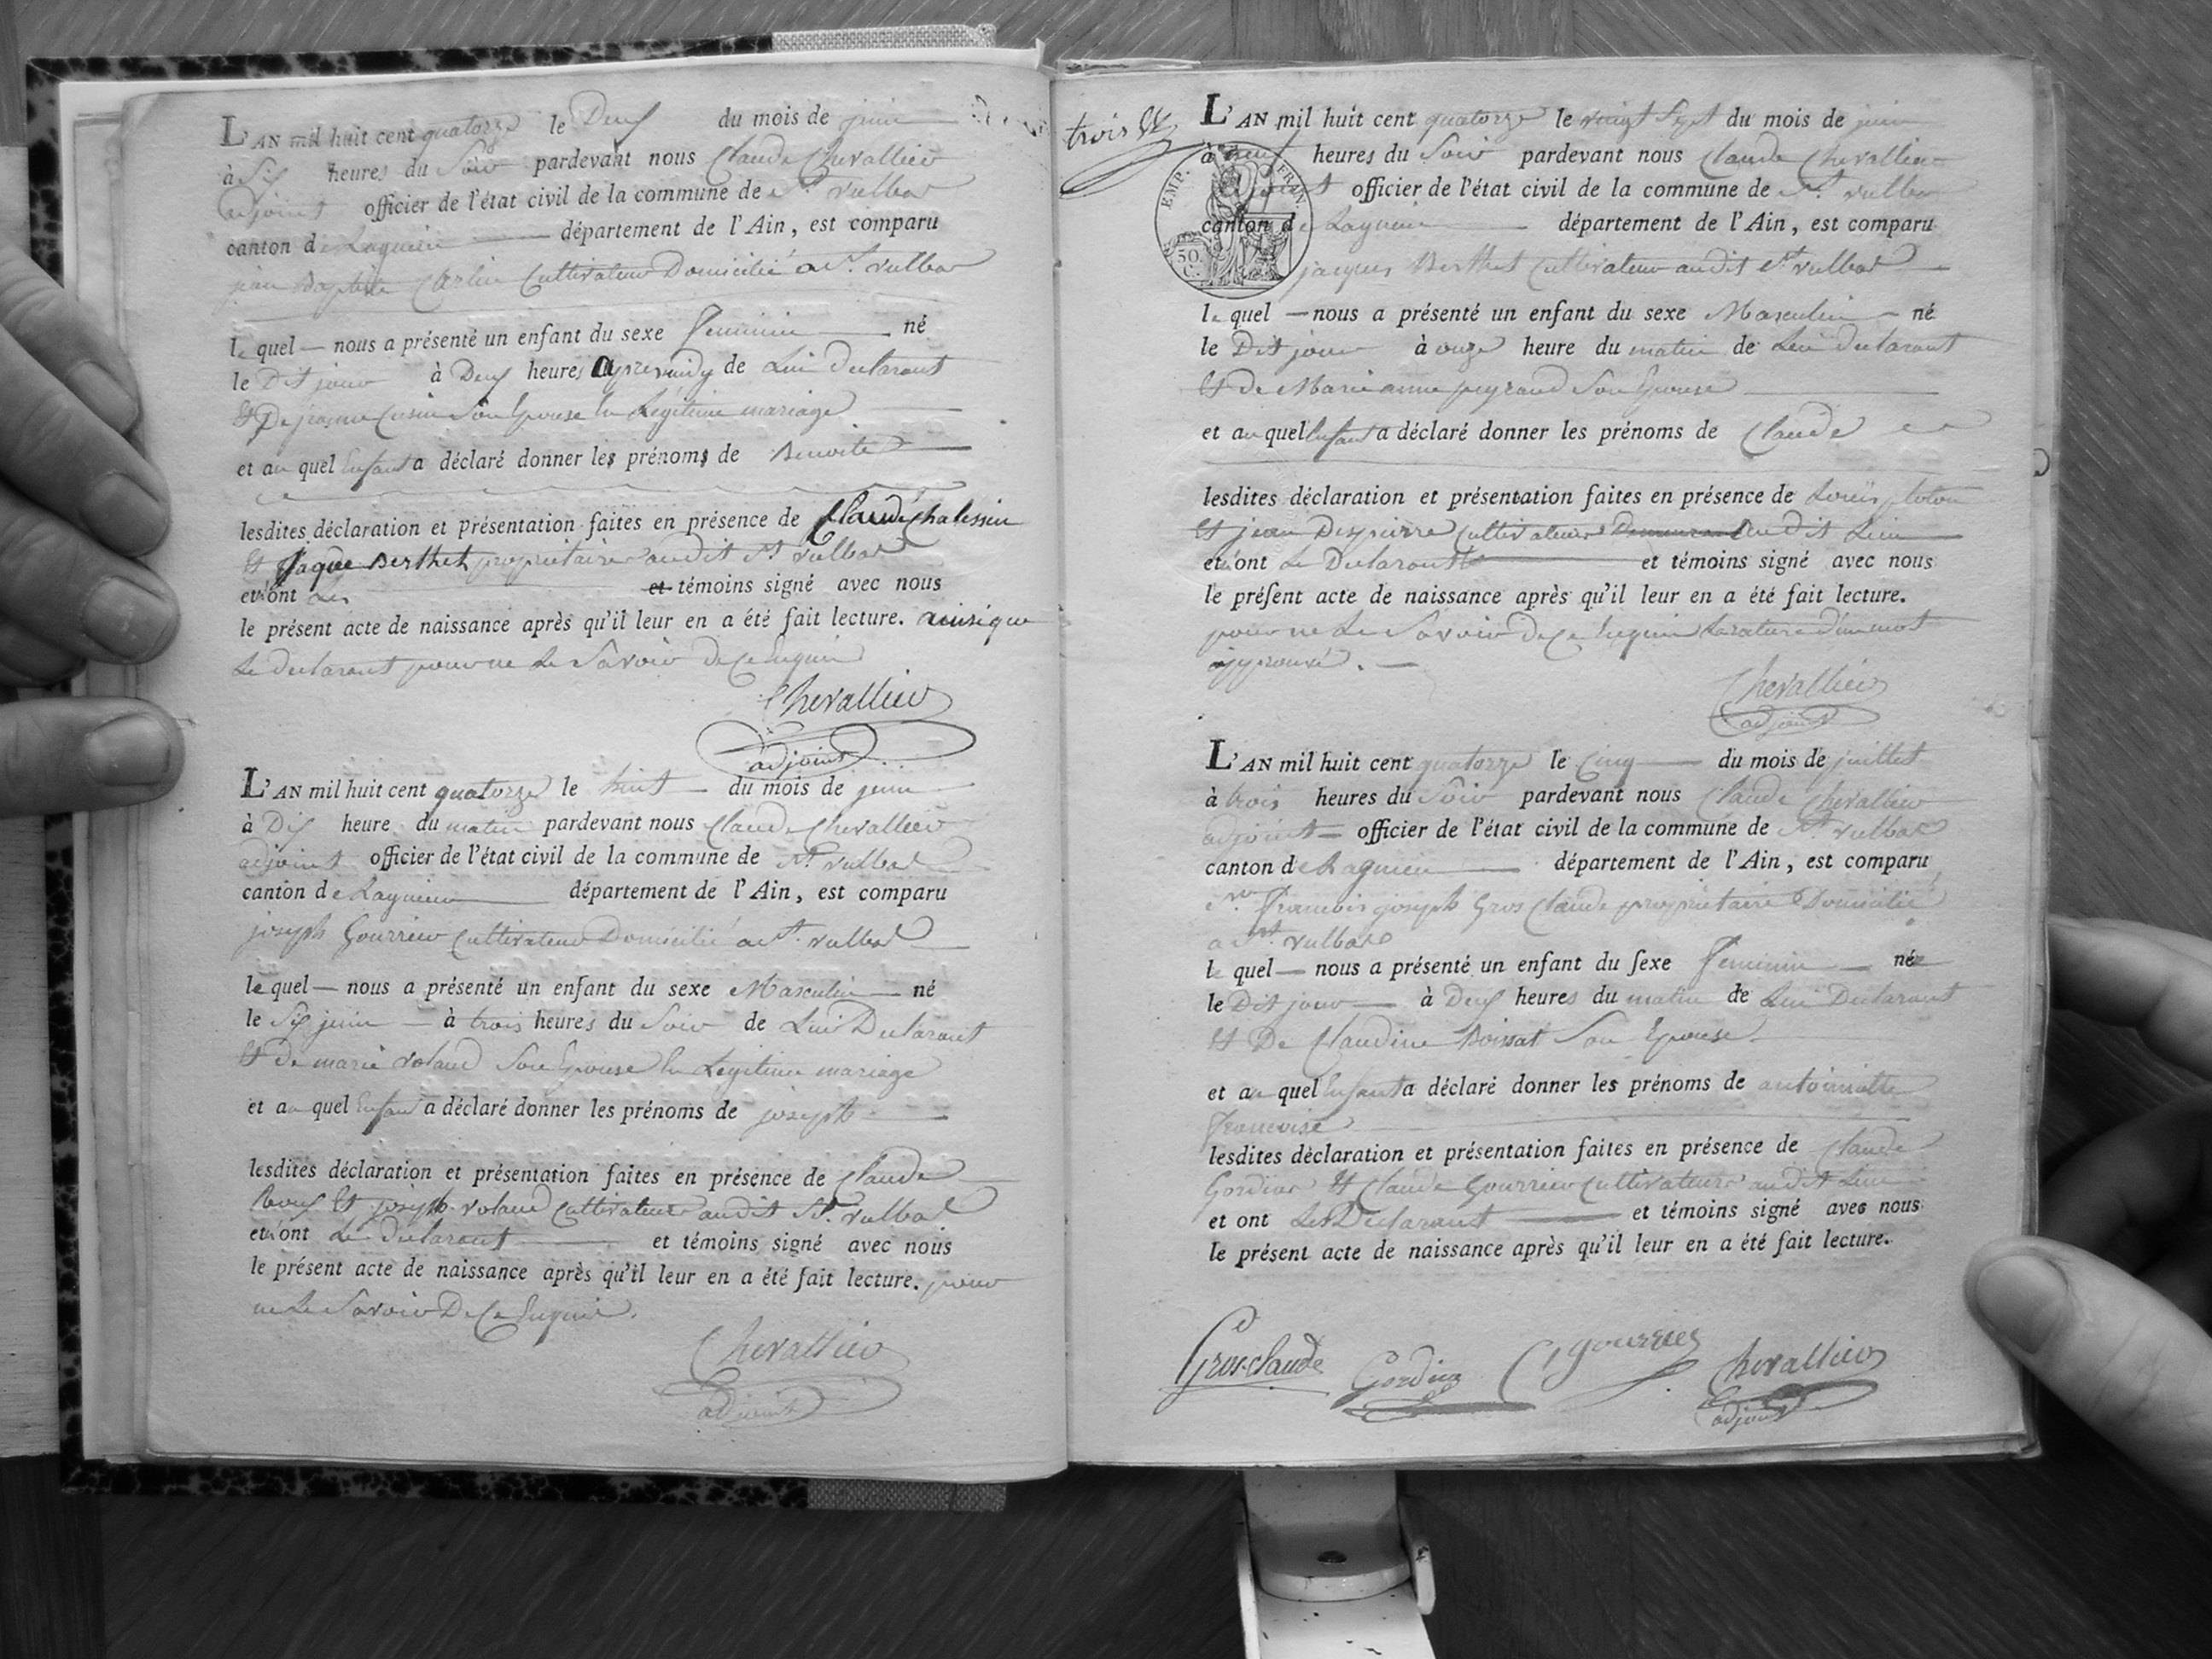 L'AN mil huit cent quatorze le Deux du mois de juin
à Six heures du Soir pardevant nous Claude Chevallier
adjoint officier de l'état civil de la commune de St. Vulbas
canton de Lagnieu département de l'Ain, est comparu
jean Baptiste Carlin Cultivateur Domicilié a St. Vulbas
le quel nous a présenté un enfant du sexe feminin né
le Dit jour à Deux heures apres midy de Lui Declarant
Et De jeanne Cusin Son Epouse En Légitime mariage
et au quel Enfant a déclaré donner les prénoms de Benoite
lesdites déclaration et présentation faites en présence de Claude Chalessin
Et Jaque Berthet propriétaires audit St. Vulbas
et n'ont les et témoins signé avec nous
le présent acte de naissance après qu'il leur en a été fait lecture. ainsi que
Le declarant pour ne Le Savoir De Ce Enquis
Chevallier
adjoint
L'AN mil huit cent quatorze le huit du mois de juin
à Dix heure du matin pardevant nous Claude Chevallier
adjoint officier de l'état civil de la commune de St. Vulbas
canton de Lagnieu département de l'Ain, est comparu
joseph Gourrier Cultivateur Domicilié a St. Vulbas
le quel nous a présenté un enfant du sexe Masculin né
le Six juin à trois heures du Soir de Lui Declarant
Et De marie Roland Son Epouse En Legitime mariage
et au quel Enfant a déclaré donner les prénoms de joseph
lesdites déclaration et présentation faites en présence de Claude
Et joseph Roland Cultivateurs audit St. Vulbas
et n'ont Le Declarant et témoins signé avec nous
le présent acte de naissance après qu'il leur en a été fait lecture. pour
ne Le Savoir De Ce Enquis.
Chevallier
adjoint
trois
L'AN mil huit cent quatorze le vingt Sept du mois de juin
à neuf heures du Soir pardevant nous Claude Chevallier
adjoint officier de l'état civil de la commune de St. Vulbas
canton de Lagnieu département de l'Ain, est comparu
EMP. FRAN.
50. C.
jacques Berthet Cultivateur audit St. Vulbas
le quel nous a présenté un enfant du sexe Masculin né
le Dit jour à onze heure du matin de Lui Declarant
Et de Marie anne peyraud Son Epouse
et au quel Enfant a déclaré donner les prénoms de Claude
lesdites déclaration et présentation faites en présence de Louis
Et jean Despierre Cultivateurs audit Lieu
et n'ont Le Declarant et témoins signé avec nous
le présent acte de naissance après qu'il leur en a été fait lecture.
pour ne Le Savoir De Ce Enquis La rature d'un mot
approuvé.
Chevallier
adjoint
L'AN mil huit cent quatorze le Cinq du mois de juillet
à trois heures du Soir pardevant nous Claude Chevallier
adjoint officier de l'état civil de la commune de St. Vulbas
canton de Lagnieu département de l'Ain, est comparu
Sr. francois joseph Gros Claude propriétaire Domicilié
a St. Vulbas
le quel nous a présenté un enfant du sexe feminin née
le Dit jour à Deux heures du matin de Lui Declarant
Et De Claudine Boissat Son Epouse.
et au quel Enfant a déclaré donner les prénoms de antoinette
francoise
lesdites déclaration et présentation faites en présence de Claude
Gordiat Et Claude Gourrier Cultivateurs audit Lieu
et ont Les Declarant et témoins signé avec nous
le présent acte de naissance après qu'il leur en a été fait lecture.
Grosclaude Gordiat C gourrier Chevallier
adjoint